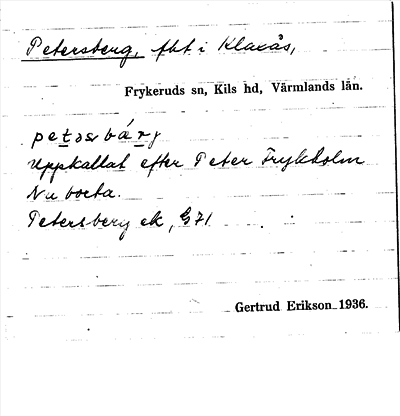 Petersberg, fbt i Klaxås,
Frykeruds sn, Kils hd, Värmlands län.
Uppkallat efter Peter Frykholm
Nu borta.
Petersberg ek, G71
Gertrud Erikson 1936.